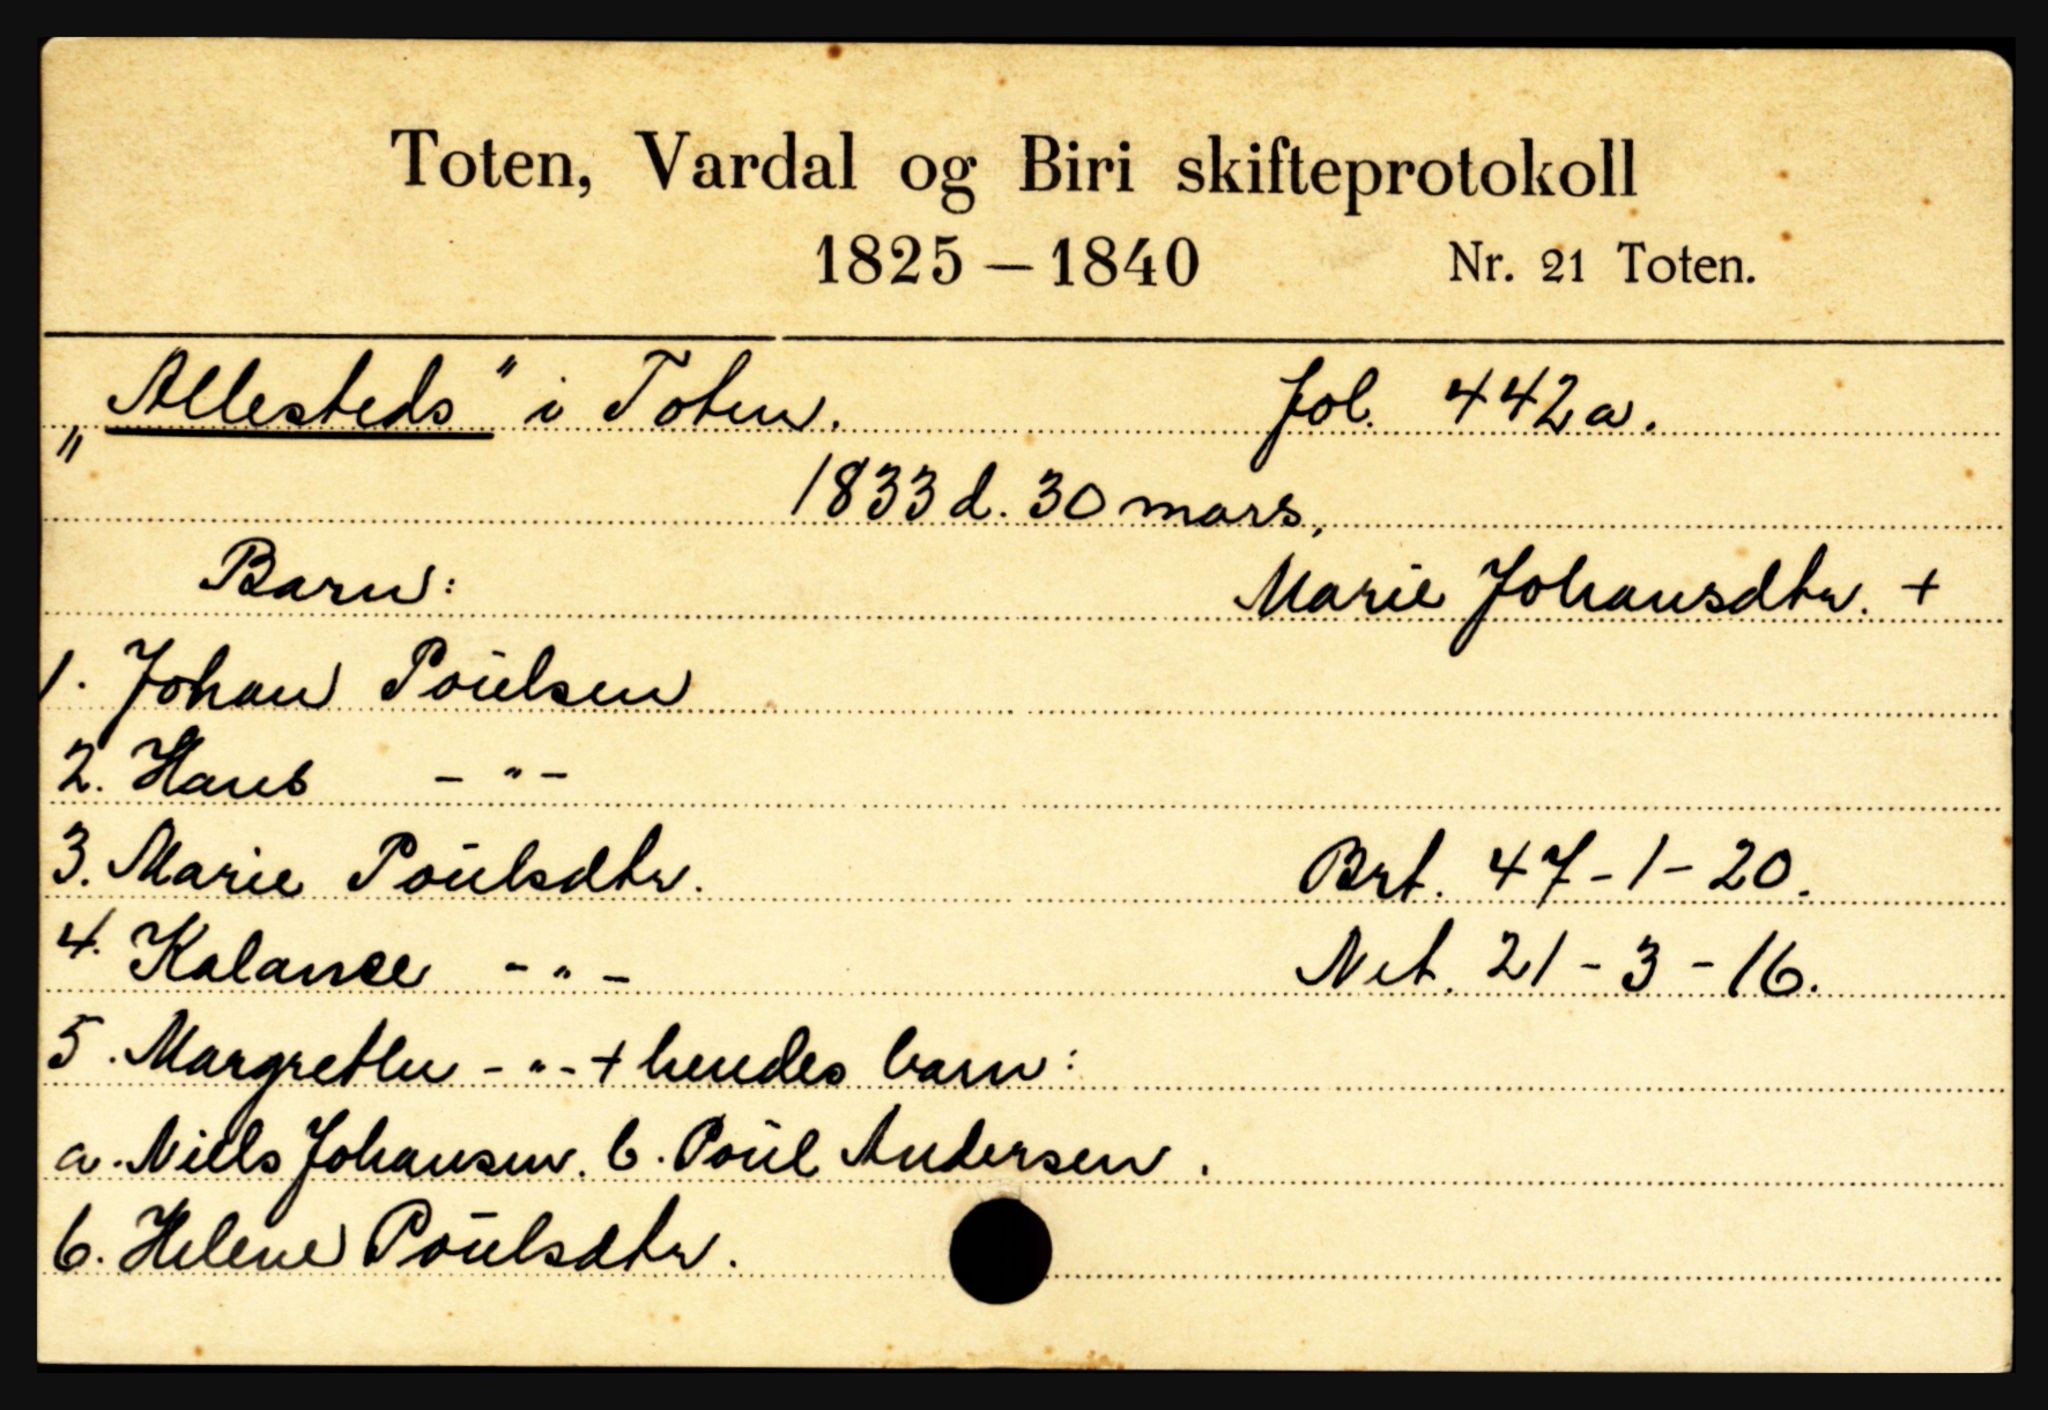 Toten, Vardal og Biri skifteprotokoll
1825 – 1840 Nr. 21 Toten.
„Allesteds" i Toten. fol. 442a.
1833 d. 30 mars,
Barn: Marie Johansdtr. +
1. Johan Poŭlsen
2. Hans - " -
3. Marie Poŭlsdtr. Brt. 47-1-20.
4. Kalanee - " - Net. 21-3-16.
5. Margrethe - " - + hendes barn:
a. Niels Johansen. b. Poŭl Andersen.
6. Helene Poŭlsdtr.